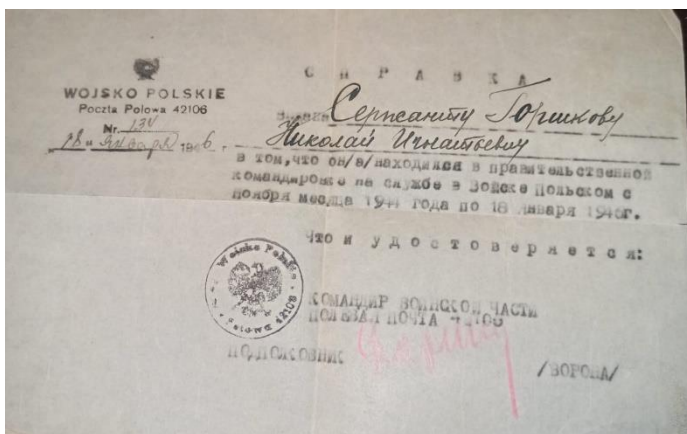 WOJSKO POLSKIE
Poczta Polowa 42106
Nr. 134
"18" января 1946 г.
СПРАВКА
Сержанту Горшкову
Николай Игнатьевич
в том, что он/а/находился в правительственной
командировке на службе в Войске Польском с
ноября месяца 1944 года по 18 января 1946г.
Что и удостоверяется:
Wojsko Polskie
Polowa 42106
КОМАНДИР ВОИНСКОЙ ЧАСТИ
ПОЛЕВАЯ ПОЧТА 42106
ПОДПОЛКОВНИК
/ВОРОНА/